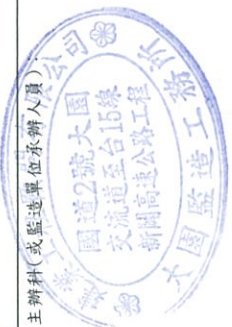 主辦科(或監造單位承辦人員):
國道2號大園
交流道至台15線
新闢高速公路工程
大園監造工務所